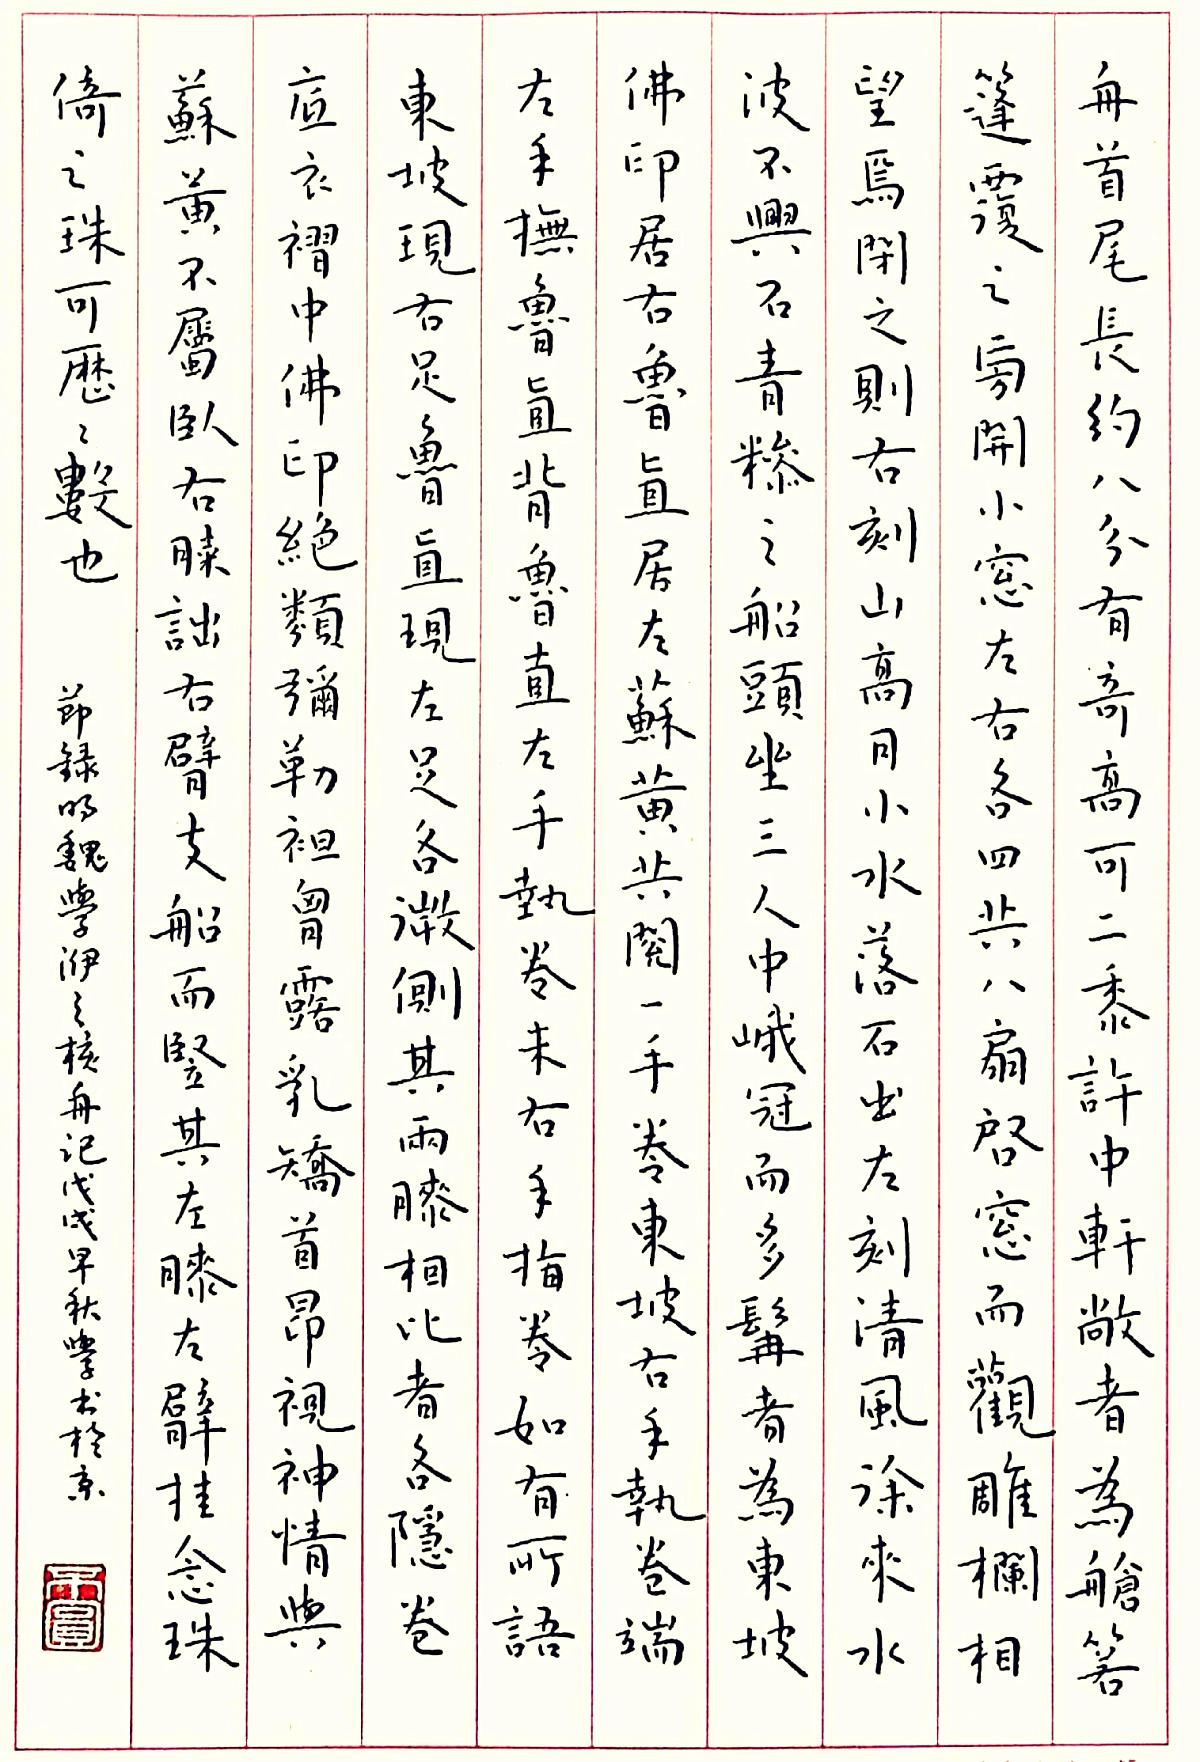 舟首尾長約八分有奇高可二黍許中軒敞者為艙箬
篷覆之旁開小窓左右各四共八扇啓窓而觀雕欄相
望焉閉之則右刻山高月小水落石出左刻清風徐來水
波不興石青糝之船頭坐三人中峨冠而多髯者為東坡
佛印居右魯直居左蘇黄共閱一手卷東坡右手執卷端
左手撫魯直背魯直左手執卷末右手指卷如有所語
東坡現右足魯直現左足各微側其兩膝相比者各隱卷
底衣褶中佛印絕類彌勒袒胷露乳矯首昂視神情與
蘇黄不屬臥右膝詘右臂支船而竪其左膝左臂挂念珠
倚之珠可歷〻數也
節錄明魏學洢之核舟記戊戌早秋學书於京